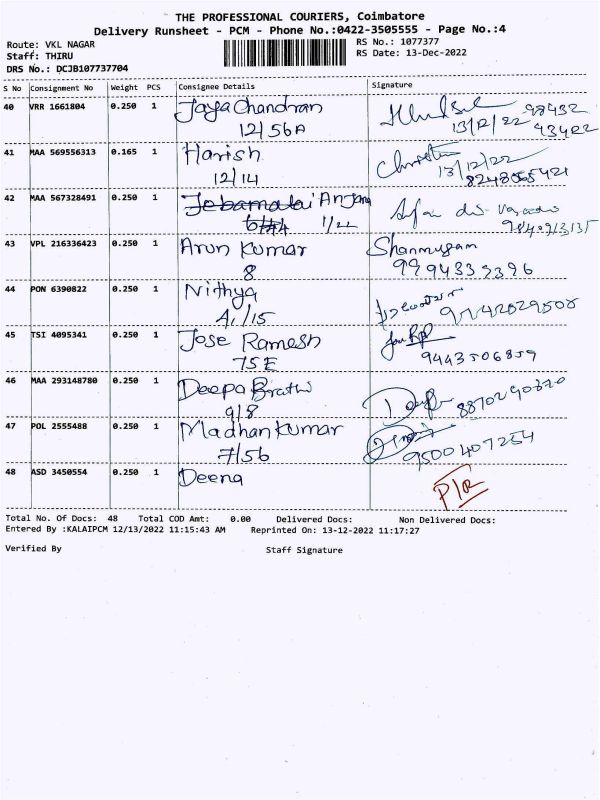 THE PROFESSIONAL COURIERS, Coimbatore
Delivery Runsheet - PCM - Phone No.:0422-3505555 - Page No.:4
Route: VKL NAGAR
Staff: THIRU
DRS No.: DCJB107737704
RS No.: 1077377
RS Date: 13-Dec-2022
S No Consignment No Weight PCS Consignee Details Signature
40 VRR 1661804 0.250 1 Jaya Chandran
12/56A 13/12/22
41 MAA 569556313 0.165 1 Harish Christin
12/14 13/12/22
42 MAA 567328491 0.250 1 Jebamalai Anjana
1/22
43 VPL 216336423 0.250 1 Arun Kumar Shanmugam
8 9994333396
44 PON 6390822 0.250 1 Nithya
A1/15
45 TSI 4095341 0.250 1 Jose Ramesh
75E 9443506859
46 MAA 293148780 0.250 1 Deepa Brathi
9/8 8870290870
47 POL 2555488 0.250 1 Madhan Kumar
7/56 9500407254
48 ASD 3450554 0.250 1 Deena P/R
Total No. Of Docs: 48 Total COD Amt: 0.00 Delivered Docs: Non Delivered Docs:
Entered By :KALAIPCM 12/13/2022 11:15:43 AM Reprinted On: 13-12-2022 11:17:27
Verified By Staff Signature